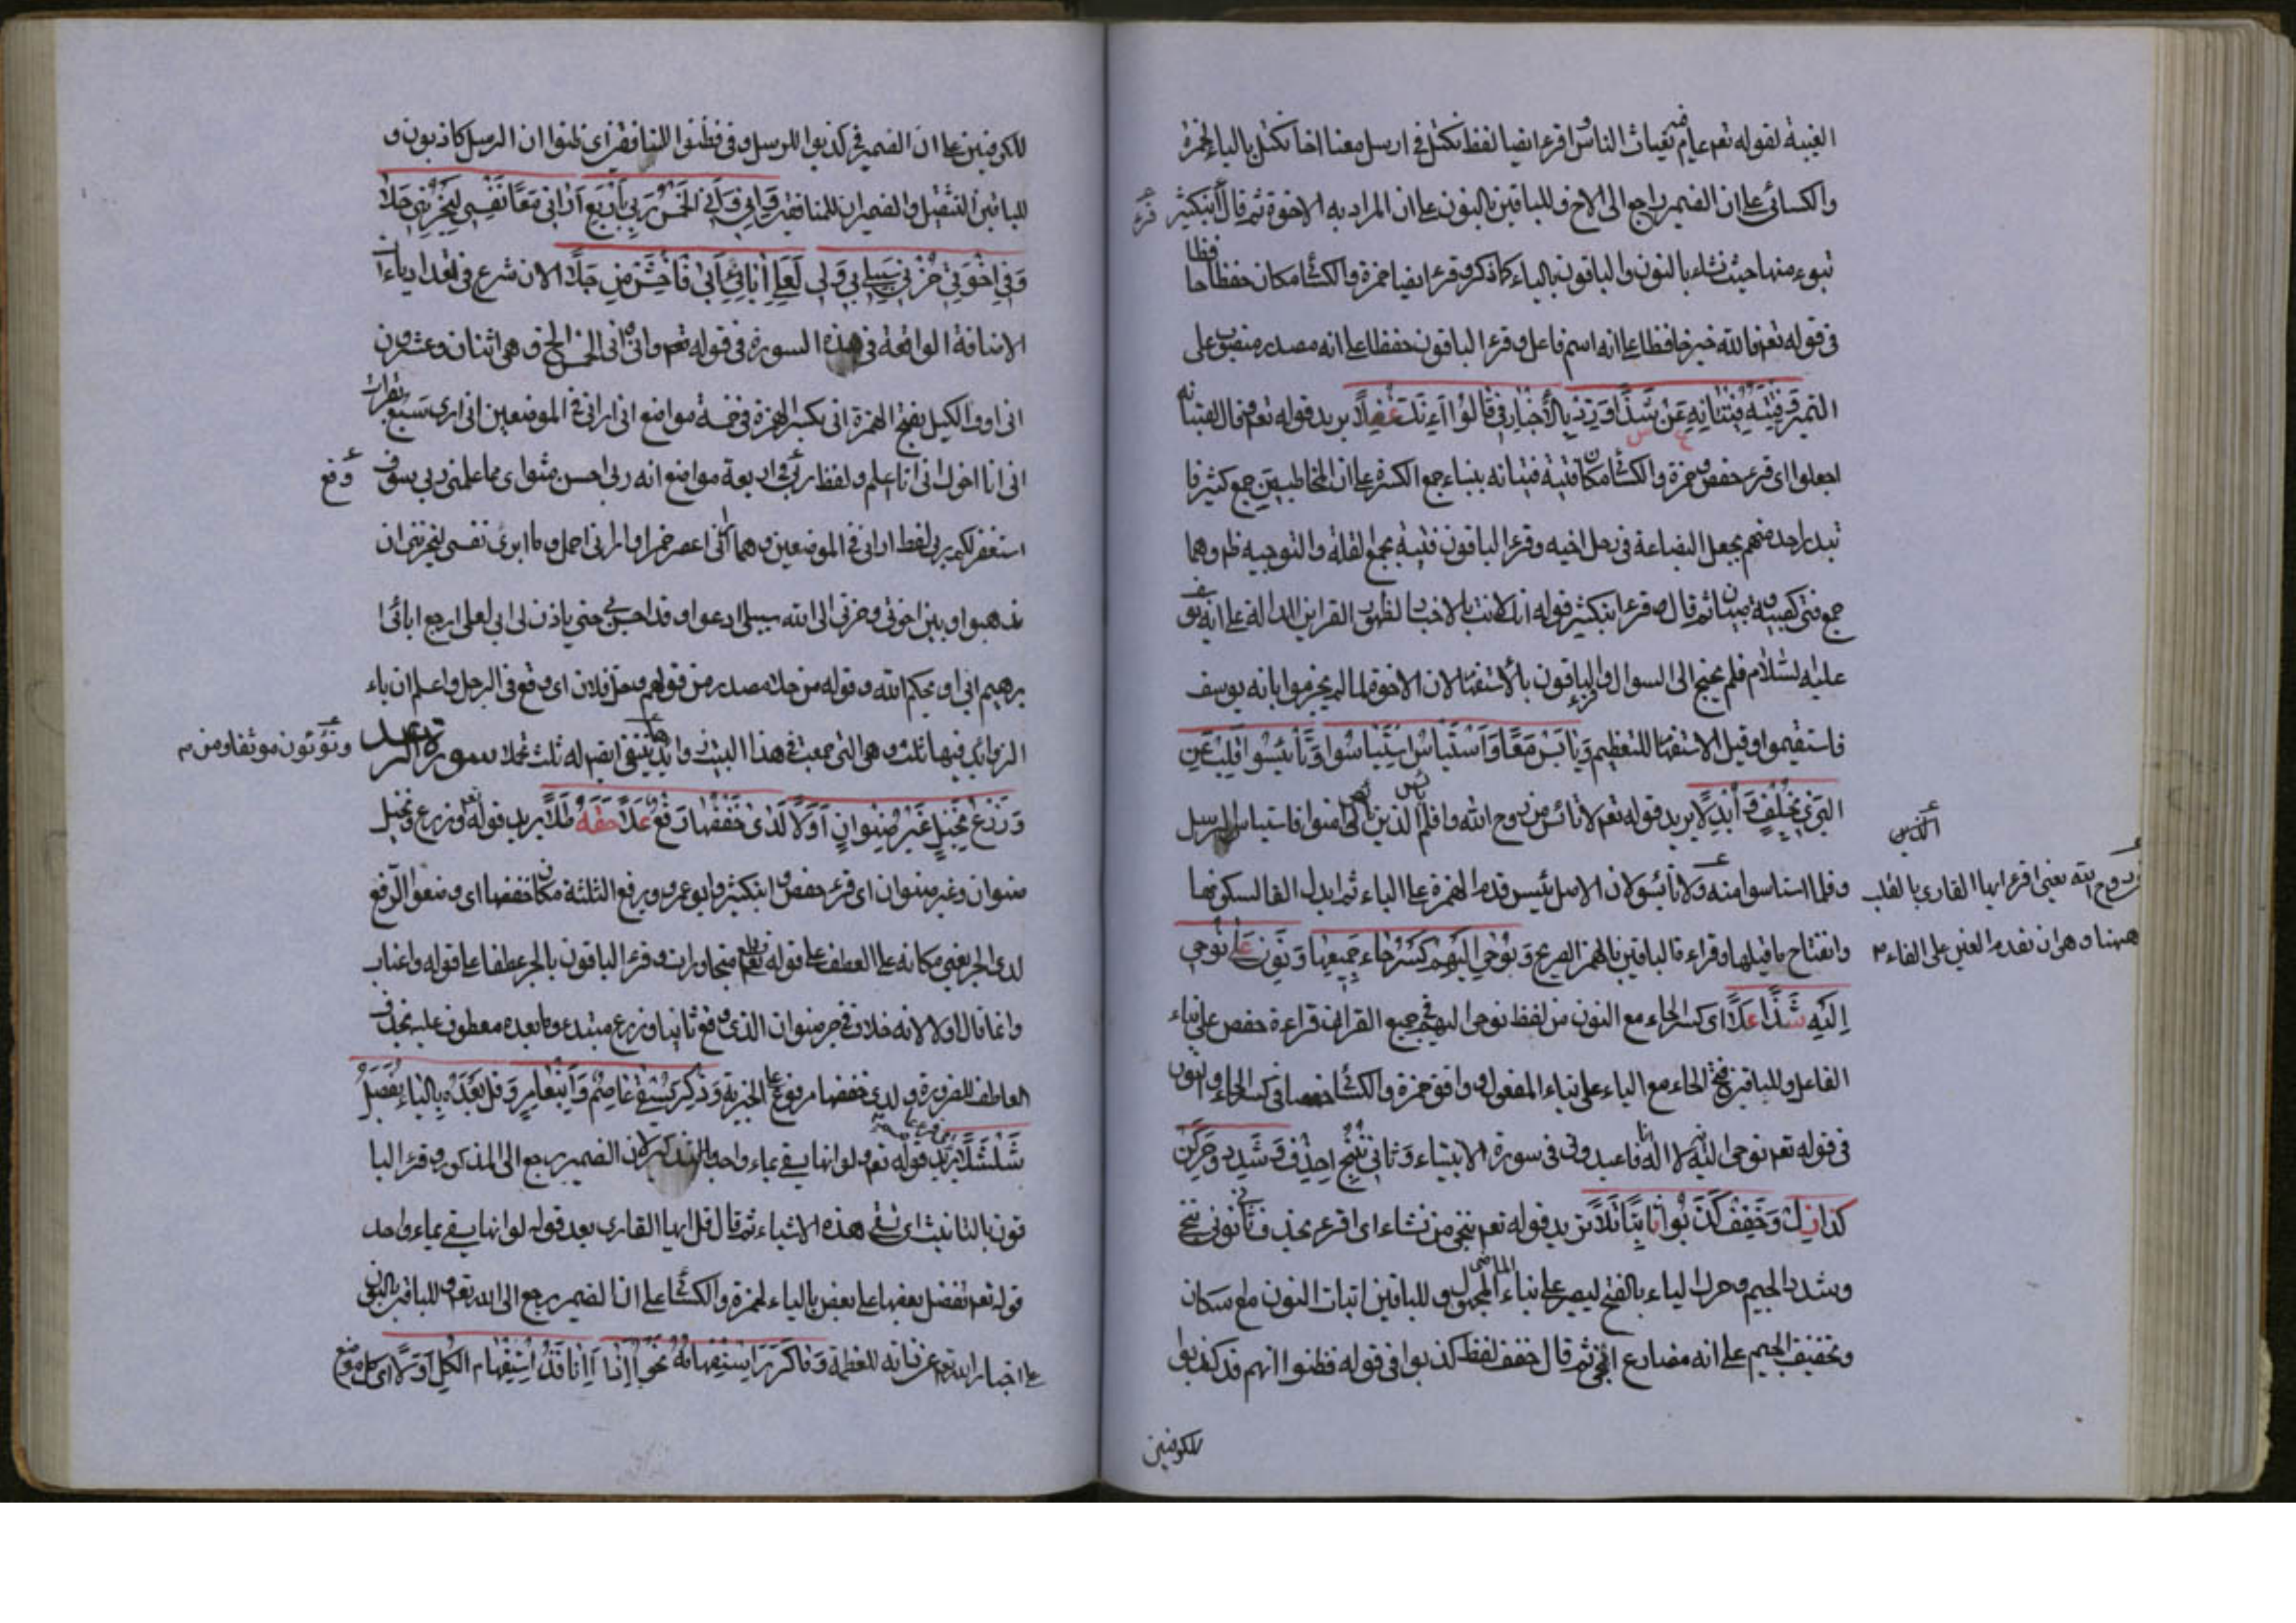 الغيبة لقوله تعم عام فيه يغاث الناس وقرء ايضا لفظ نكتل في ارسل معنا اخانا نكتل بالياء لحمزة
والكسائي على ان الضمير راجع الى الاخ وللباقين بالنون على ان المراد به الاخوة ثم قال ابنكثير قرء
تبوء منها حيث نشاء بالنون والباقون بالياء كما ذكر وقرء ايضا حمزة والكسائي مكان حفظا حافظا
في قوله تعم فالله خير حافظا على انه اسم فاعل وقرء الباقون حفظا على انه مصدر منصوب على
التميز وفتيته فتيانه عن شذا ورد بالاخبار في قالوا ائنك دغفلا يريد قوله تعم وقال لفتيانه
اجعلوا اى قرء حفص وحمزة والكسائي مكان فتيته فتيانه ببناء جمع الكثرة على ان المخاطبين جمع كثير
واحد منهم بجعل البضاعة في رحل اخيه وقرء الباقون فتيته بجمع لقلة والتوجيه ظ وهما
جمع فتى كصبية وصبيان ثم قال وقرء ابنكثير قوله انك لانت بالاخبار لظهور القراين الدالة على انه يوسف
عليه لسلام فلم يحتج الى السوال وقرء الباقون بالاستفهام لان الاخوة لما لم يجزموا بانه يوسف
فاستفهموا وقيل الاستفهام للتعظيم ويايس معا واستياس استياسوا وتايسوا اقلب عن
البزي بخلف وابدلا يريد قوله تعم لا تايئس من روح الله وافلم يايئس الذين امنوا فاستياس الرسل
وفلما استياسوا منه ولا تايئسوا لان الاصل يئيس قدم الهمزة على الياء ثم ابدل الفا لسكونها
الذين
روح الله يعنى اقرء ايها القارى بالقلب
ههنا وهو ان تقدم العين على الفاء م
وانفتاح ما قبلها وقراءة الباقين بالهمز الصريح ويوحى اليهم كسر حاء جميعها ونون على يوحى
اليه شذا علا اى كسر الحاء مع النون من لفظ نوحى اليهم في جميع القران قراءة حفص على بناء
الفاعل وللباقين فتح الحاء مع الياء على بناء المفعول ووافق حمزة والكسائي حفصا في كسر الحاء والنون
في قوله تعم نوحى اليه انه لا اله الا انا فاعبدونى في سورة الانبياء وثانى ننج احذف وشدد وحركن
كذا نل وخفف كذبوا ثابتا تلا يريد قوله تعم فنجى من نشاء اى اقرء بحذف ثانى نونى ننجى
وشدد الجيم وحرك لياء بالفتح ليصير على بناء الماضى المجهول وللباقين اثبات النون مع سكان
وتخفيف الجيم على انه مضارع انجى ثم قال خفف لفظ كذبوا في قوله فظنوا انهم قد كذبوا
للكوفيين
للكوفيين على ان الضمير في كذبوا للرسل وفي فظنوا للمنافقين اى ظنوا ان الرسل كاذبون و
للباقين التثقيل والضميران للمنافقين وانى وانى الخمس ربى باربع ارانى معا نفسى ليحزننى حلا
وفي اخوتى حزنى سبيلى بى ولى لعلى ابائى ابى فاخش من جلا الان شرع في تعداد ياءات
الاضافة الواقعة في هذه السورة في قوله تعم وانى وانى الخمس الخ وهى اثنان وعشرون
انى اوف الكيل بفتح الهمزة انى بكسر الهمزة في خمسة مواضع انى ارانى في الموضعين انى ارى سبع بقرات
انى انا اخوك انى انا اعلم ولفظ ربى في اربعة مواضع انه ربى احسن مثواى مما علمنى ربى سوف
استغفر لكم ربى لفظ ارانى في الموضعين وهما ارانى اعصر خمرا وارانى احمل وما ابرئ نفسى ليحزننى ان
تذهبوا به وبين اخوتى وحزنى الى الله سبيلى ادعو او قد احسن بى حتى ياذن لى ابى لعلى ارجع ابائى ا
برهيم ابى او يحكم الله وقوله من جلا مصدر من قولهم وحل فلان اى وقع في الوحل واعلم ان ياء
الزوائد فيها ثلث وهى التى جمعت في هذا البيت وهاء يتقى ايضم له ثلث تجلا سورة الرعد
وتؤتون موثقا ومن م
وزرع نخيل غير صنوان اولا لدى خفضها رفع علا حقه طلا يريد قوله تعم وزرع ونخيل
صنوان وغير صنوان اى قرء حفص وابنكثير وابو عمرو برفع الثلثة مكان خفضها اى وضعوا الرفع
لدى الجر يعنى مكانه على العطف على قوله تعم قطع متجاورات وقرء الباقون بالجر عطفا على قوله واعناب
وانما قال اولا لانه خلاف في جر صنوان الذى وقع ثانيا وزرع مبتدء وما بعده معطوف عليه بحذف
العاطف للضرورة ولدى خفضها مرفوع على الخبرية وذكر يسقى عاصم وابنعامر وقل بعده بالياء يفضل
شلشلا يريد قوله تعم ولو انها يسقى بماء واحد بالتذكير لان الضمير يرجع الى المذكور وقرء البا
قون بالتانيث اى تسقى هذه الاشياء ثم قال قل ايها القارى بعد قوله لو انها يسقى بماء واحد
قوله تعم نفضل بعضها على بعض بالياء لحمزة والكسائي على ان الضمير يرجع الى الله تعم وللباقين بالنون
على اخبار الله تعم عن ذاته للعظمة وما كرر استفهامه نحو ائذا ائنا فذو استفهام الكل اولا اى كل موضع